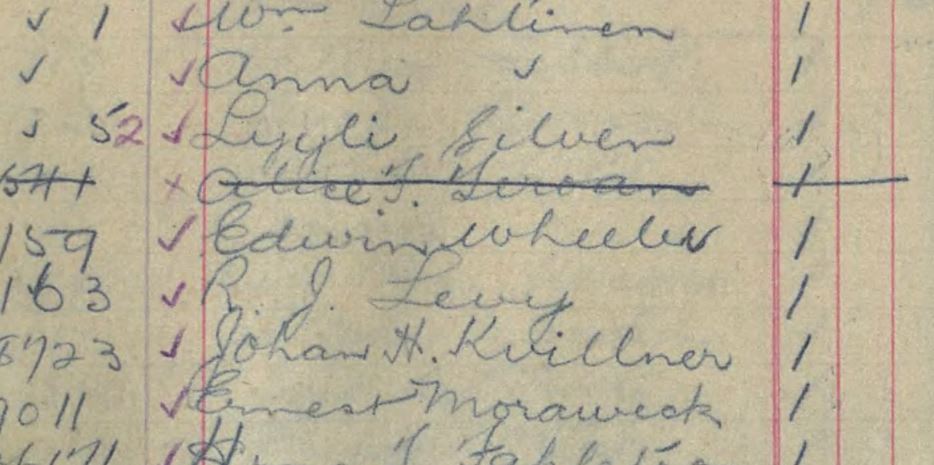 ✓ 1 ✓ Wm Lahtinen 1
✓ ✓ Anna ✓ 1
✓ 52 ✓ Lyyli Silven 1
541 x Alice 1
159 ✓ Edwin Wheeler 1
163 ✓ R. J. Levy 1
8723 ✓ Johan H. Kvillner 1
9011 ✓ Ernest Moraweck 1